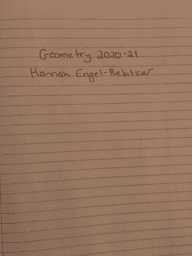 Geometry 2020-21
Hannah Engel-Rebitzer